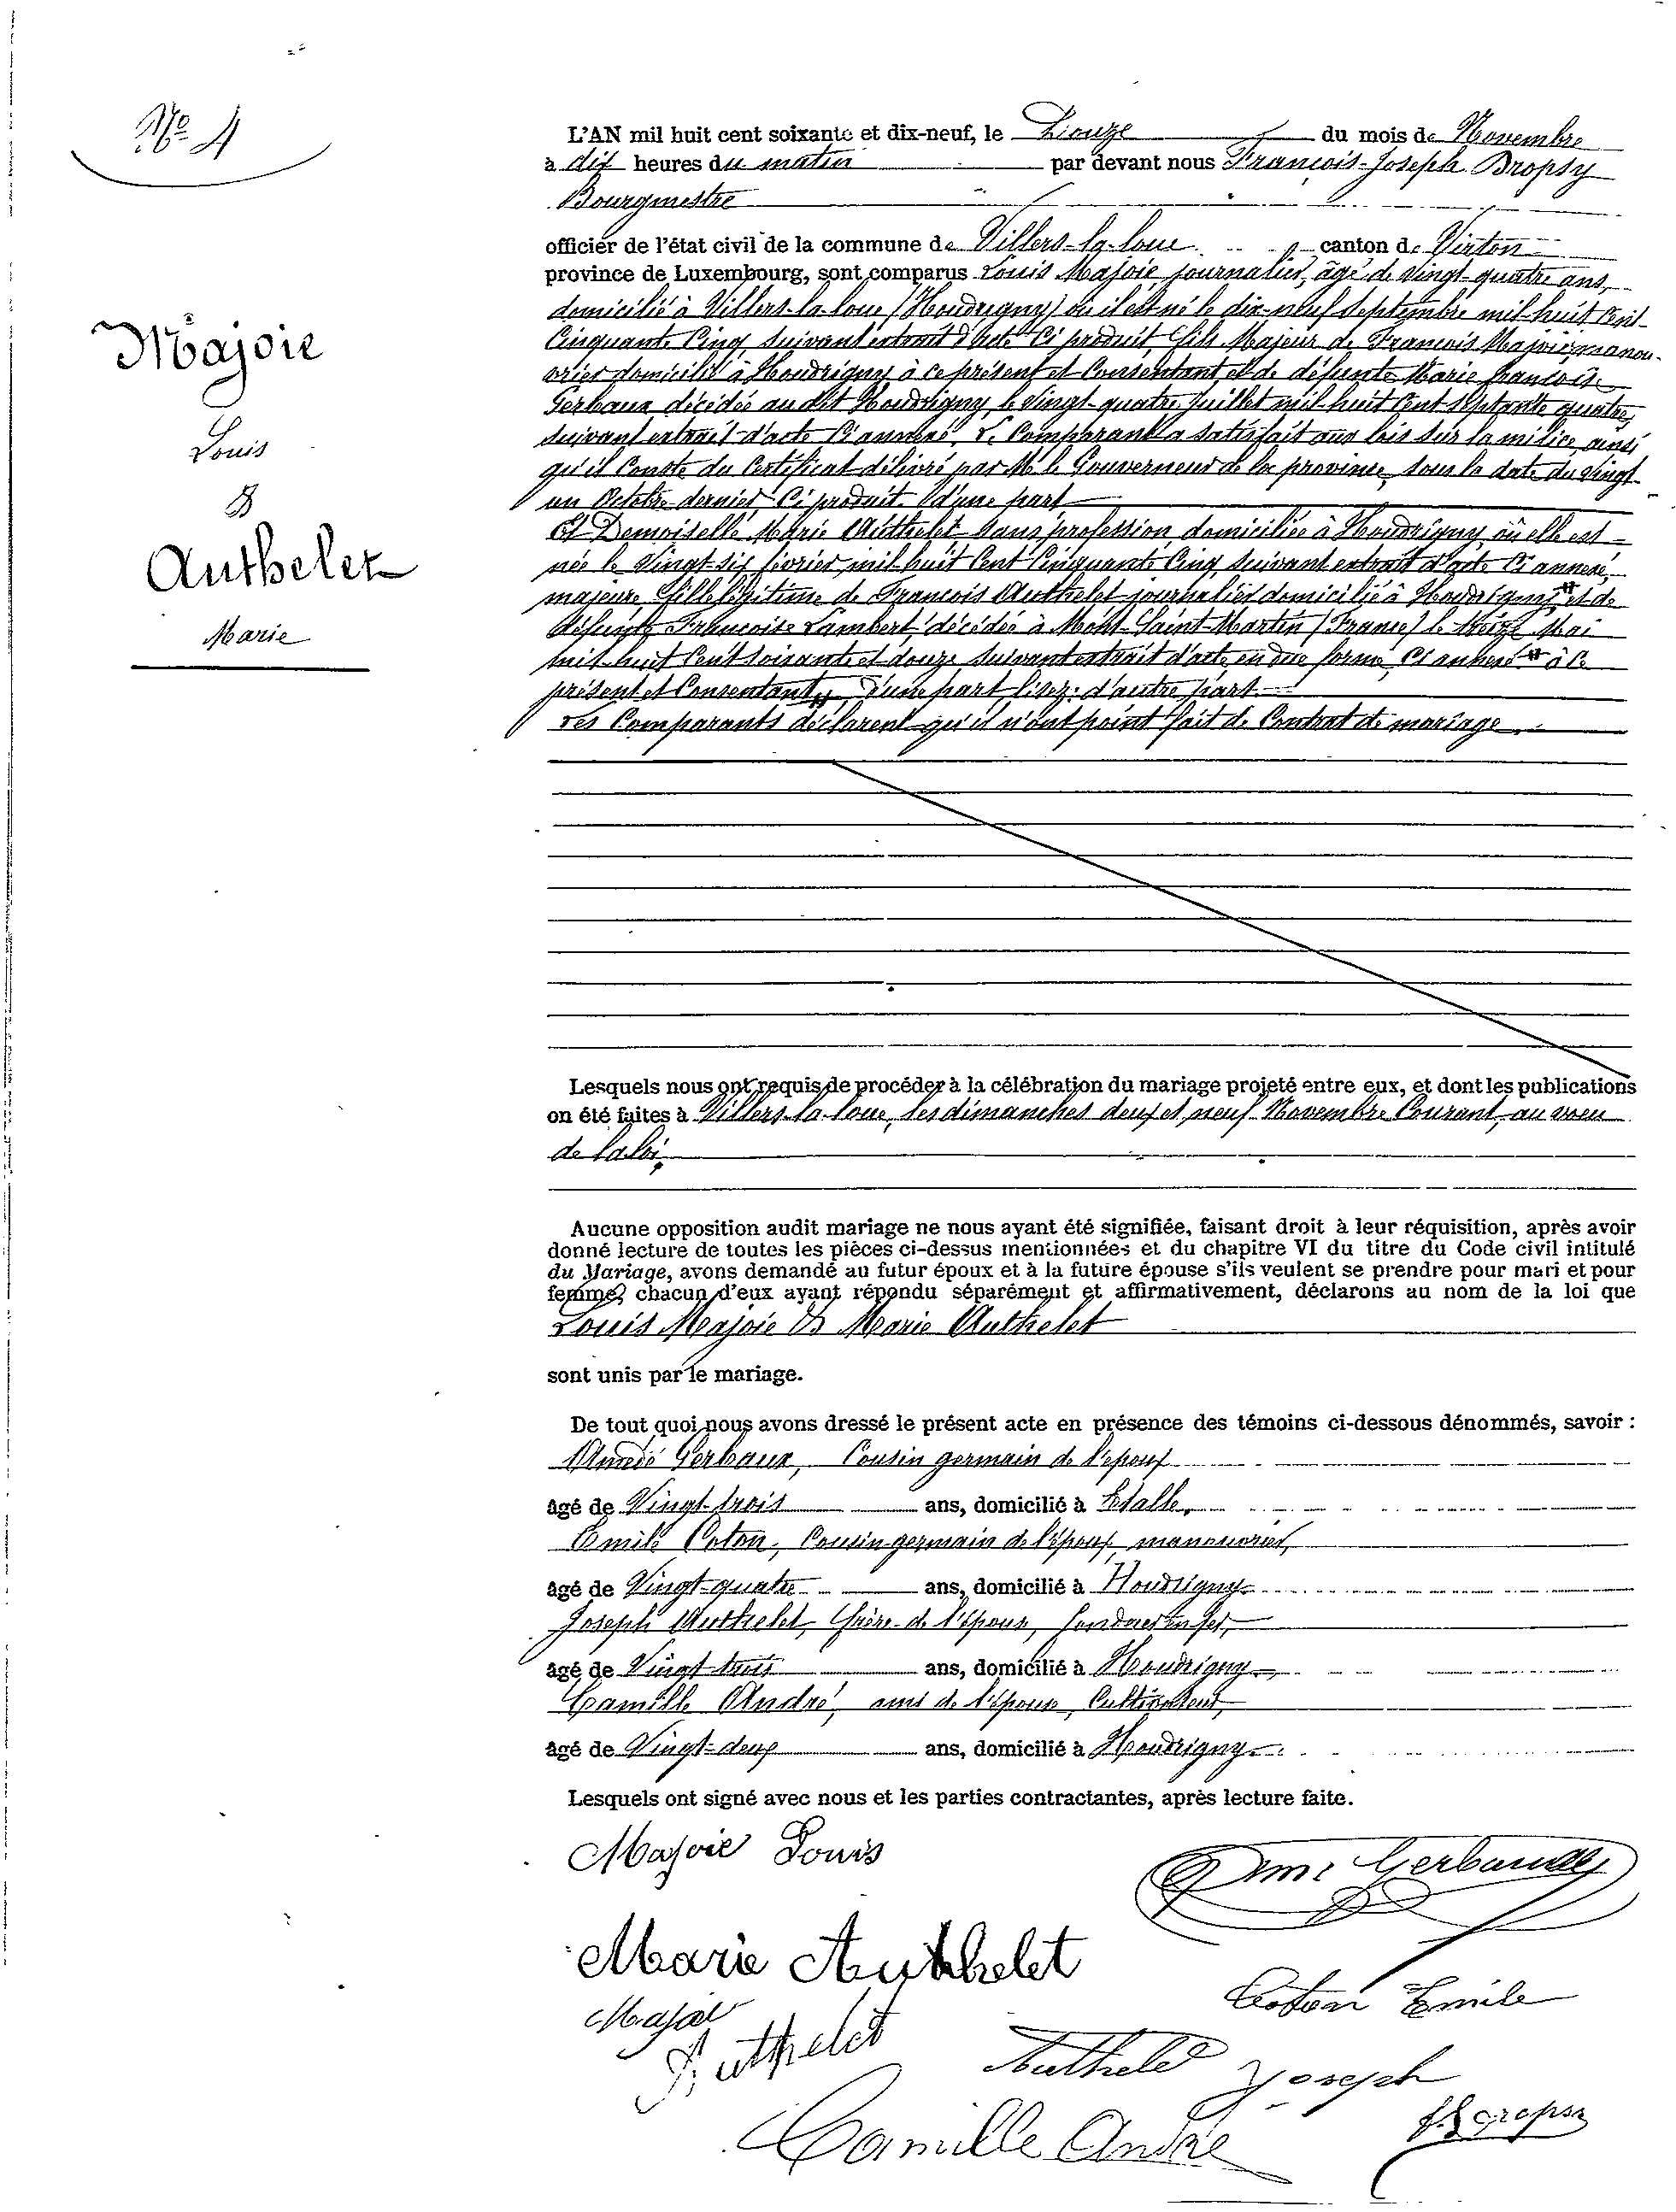 N° 4
Majoie
Louis
&
Authelet
Marie
L'AN mil huit cent soixante et dix-neuf, le Douze du mois de Novembre
à dix heures du matin par devant nous François-Joseph Bropsy
Bourgmestre
officier de l'état civil de la commune de Villers-la-loue canton de Virton
province de Luxembourg, sont comparus Louis Majoie, journalier, âgé de vingt-quatre ans,
domicilié à Villers-la-loue (Houdrigny) où il est né le dix-neuf Septembre mil-huit Cent-
Cinquante Cinq, suivant extrait d'acte Ci produit, fils Majeur de François Majoie, manou-
vrier domicilié à Houdrigny à ce présent et Consentant, et de défunte Marie françoise
Gerbaux décédée au dit Houdrigny, le vingt-quatre Juillet mil-huit Cent Septante quatre,
suivant extrait d'acte Ci annexé. Le Comparant a satisfait aux lois sur la milice, ainsi
qu'il Conste du Certificat délivré par Mr le Gouverneur de la province, sous la date du vingt-
un Octobre dernier, Ci produit. d'une part
Et Demoiselle Marie Authelet, sans profession, domiciliée à Houdrigny, où elle est
née le Vingt-six février mil huit Cent Cinquante Cinq, suivant extrait d'acte Ci annexé,
majeure, fille légitime de François Authelet journalier domicilié à Houdrigny # et de
défunte Françoise Lambert, décédée à Mont-Saint-Martin (France) le treize Mai
mil-huit Cent soixante et douze, suivant extrait d'acte en due forme, Ci annexé # à Ce
présent et Consentant, d'une part lisez: d'autre part.
Les Comparants déclarent qu'il n'ont point fait de Contrat de mariage.
Lesquels nous ont requis de procéder à la célébration du mariage projeté entre eux, et dont les publications
on été faites à Villers-la-loue, les dimanches deux et neuf Novembre Courant, au vœu
de la loi.
Aucune opposition audit mariage ne nous ayant été signifiée, faisant droit à leur réquisition, après avoir
donné lecture de toutes les pièces ci-dessus mentionnées et du chapitre VI du titre du Code civil intitulé
du Mariage, avons demandé au futur époux et à la future épouse s'ils veulent se prendre pour mari et pour
femme, chacun d'eux ayant répondu séparément et affirmativement, déclarons au nom de la loi que
Louis Majoie & Marie Authelet
sont unis par le mariage.
De tout quoi nous avons dressé le présent acte en présence des témoins ci-dessous dénommés, savoir :
Gerbaux, Cousin germain de l'époux
âgé de Vingt-trois ans, domicilié à Etalle,
Emile Coton, Cousin germain de l'époux, manouvrier,
âgé de Vingt-quatre ans, domicilié à Houdrigny
Joseph Authelet, frère de l'épouse, fondeur en fer,
âgé de Vingt-trois ans, domicilié à Houdrigny
Camille André, ami de l'épouse, Cultivateur,
âgé de Vingt-deux ans, domicilié à Houdrigny
Lesquels ont signé avec nous et les parties contractantes, après lecture faite.
Majoie Louis
Gerbaux
Marie Authelet
Coton Emile
Majoie
Authelet
Authelet Joseph
Camille André
Bropsy